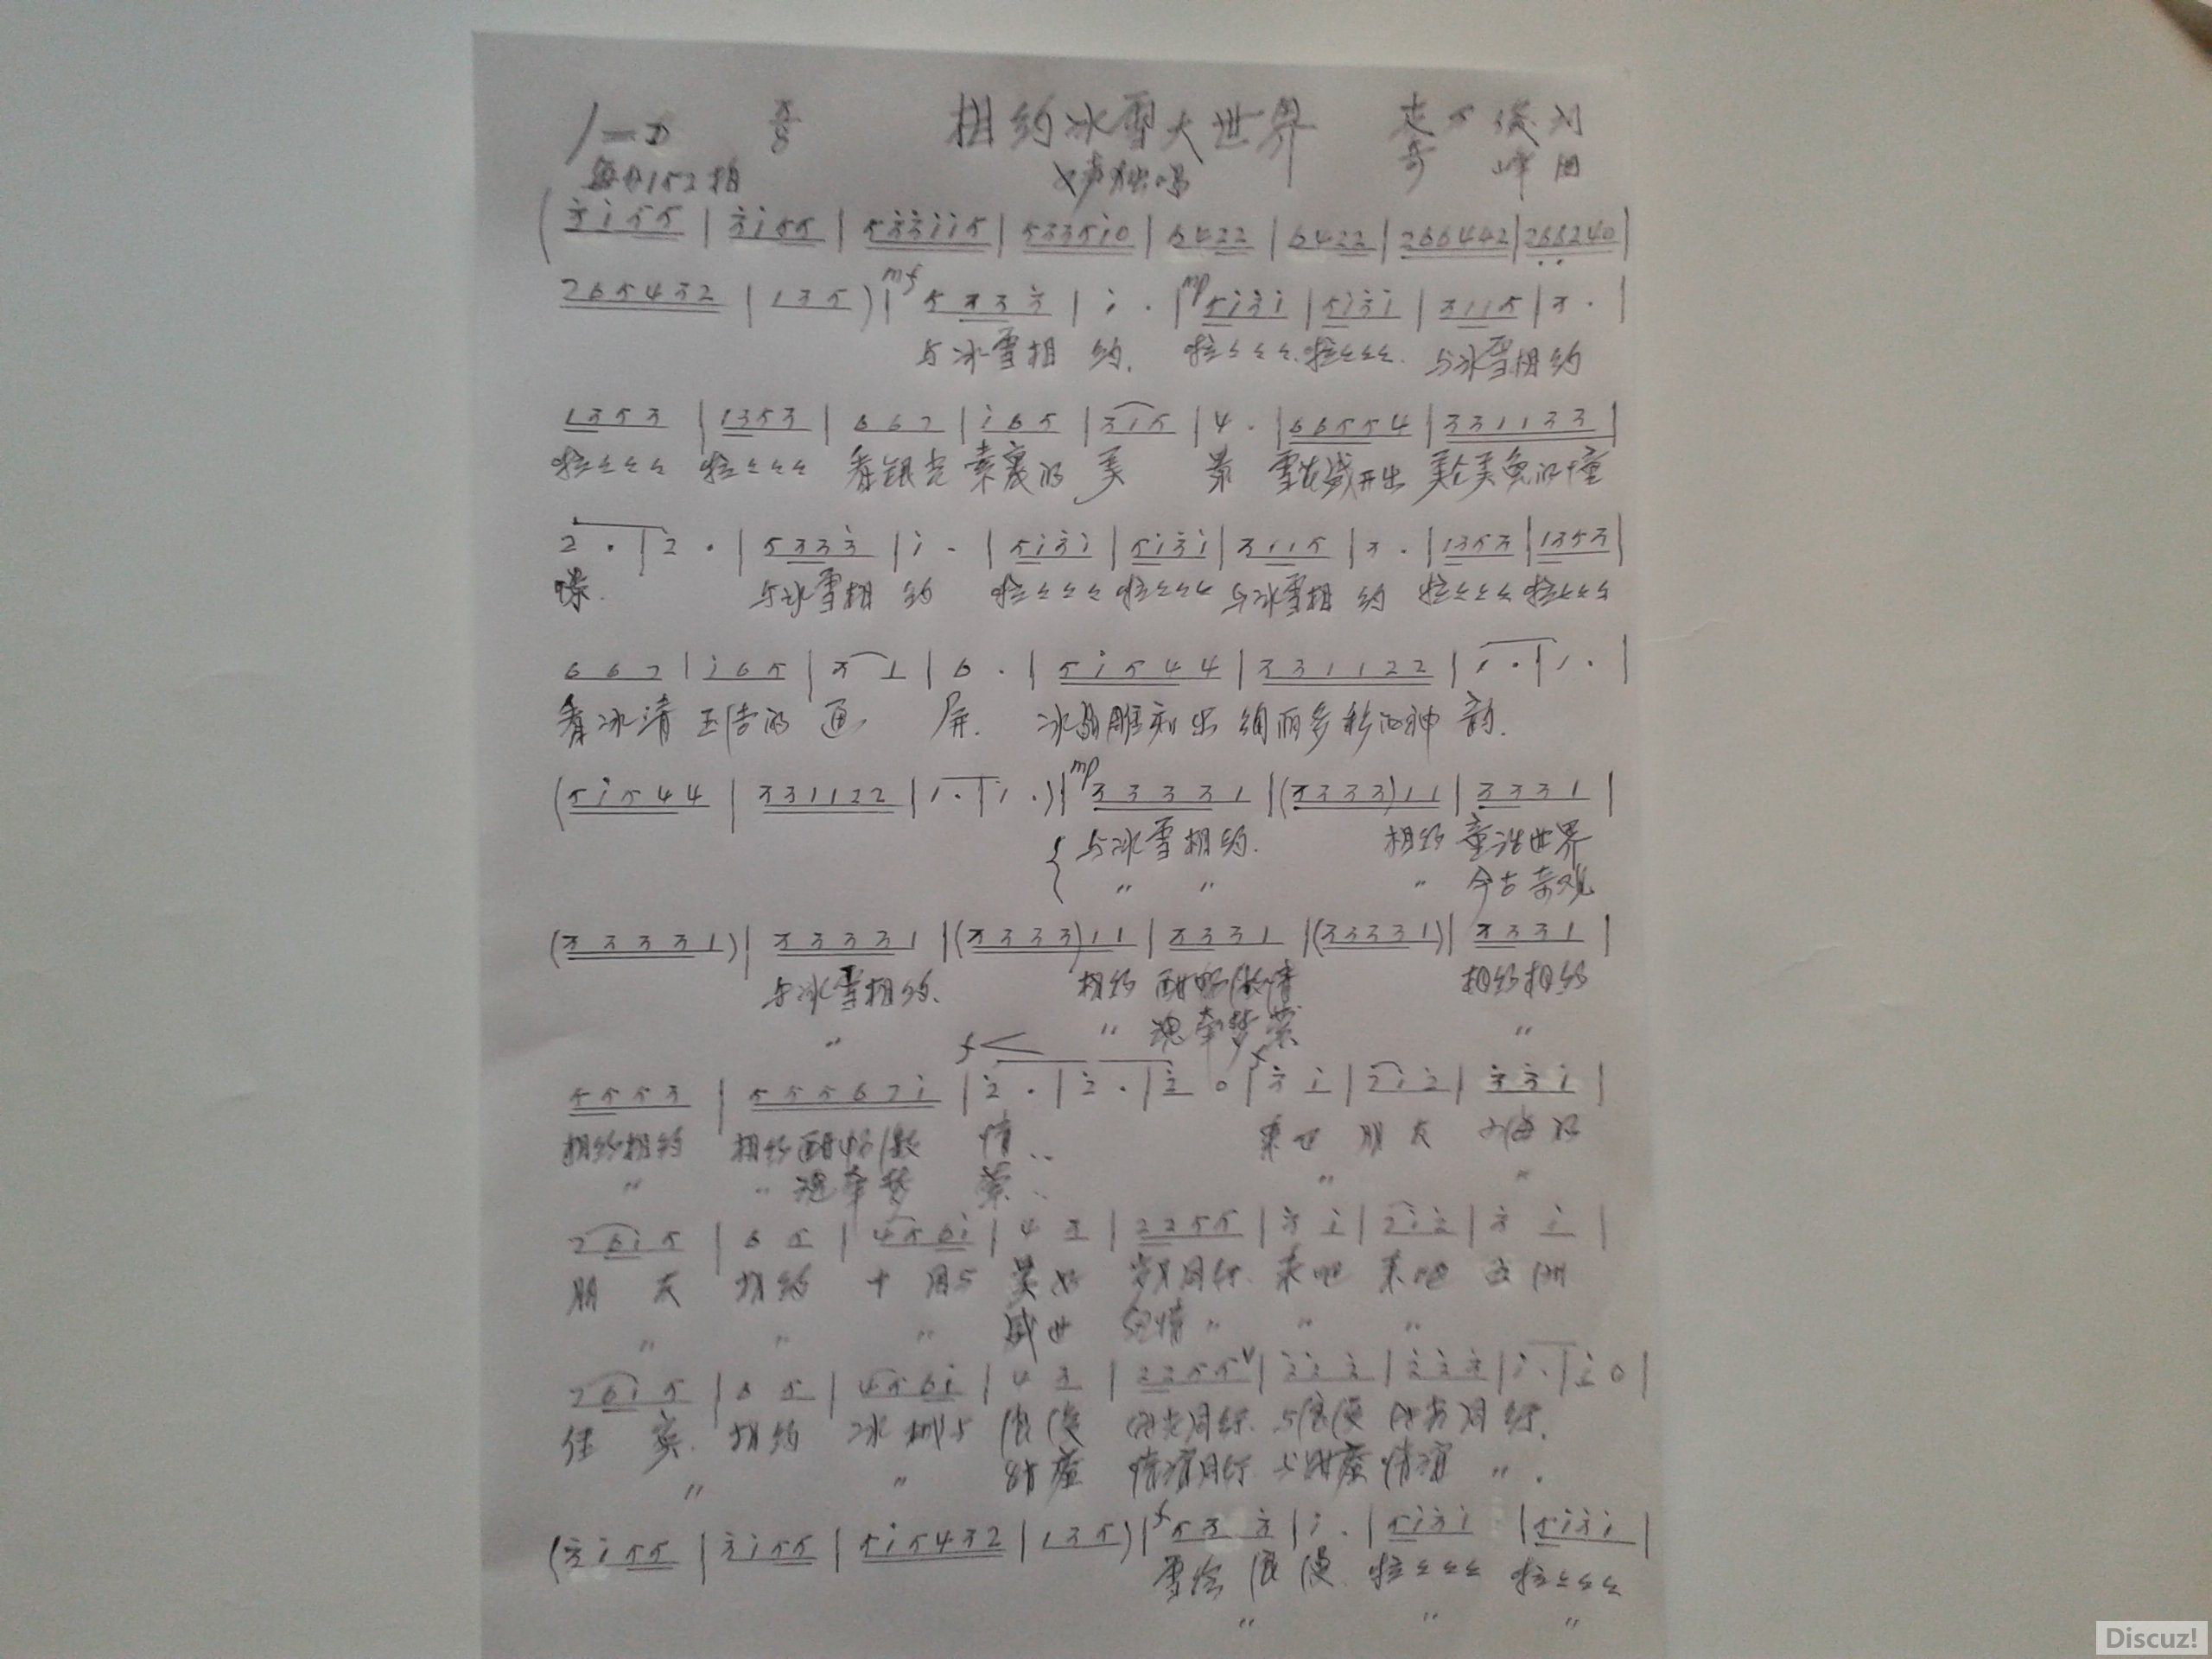 1=D 3/8 相约冰雪大世界
每分152拍 女声独唱 曲
(3̇ i 5 5 | 3̇ i 5 5 | 5 3̇ 3̇ i i 5 | 5 3 3 5 i 0 | 6 4 2 2 | 6 4 2 2 | 2 6 6 4 4 2 | 2 6̣ 6̣ 2 4 0 |
2 6 5 4 3 2 | 1 3 5 ) | mf 5 3 3 3̇ | i · | mp 5 i 3̇ i | 5 i 3̇ i | 3 1 1 5 | 3 · |
与冰雪相 约. 啦ㄥㄥㄥ. 啦ㄥㄥㄥ. 与冰雪相约
1 3 5 3 | 1 3 5 3 | 6 6 7 | i 6 5 | 3 1 5 | 4 · | 6 6 5 5 4 | 3 3 1 1 3 3 |
啦ㄥㄥㄥ 啦ㄥㄥㄥ 看银光 素裹的 美 景 雪花盛开出 美仑美奂的憧
2 · | 2 · | 5 3 3 3̇ | i · | 5 i 3̇ i | 5 i 3̇ i | 3 1 1 5 | 3 · | 1 3 5 3 | 1 3 5 3 |
憬. 与冰雪相 约 啦ㄥㄥㄥ 啦ㄥㄥㄥ 与冰雪相 约 啦ㄥㄥㄥ 啦ㄥㄥㄥ
6 6 7 | i 6 5 | 3 1 | 6 · | 5 i 5 4 4 | 3 3 1 1 2 2 | 1 · | 1 · |
看冰清 玉洁的 画 屏. 冰晶雕刻出 绚丽多彩的神 韵.
(5 i 5 4 4 | 3 3 1 1 2 2 | 1 · | 1 · ) | mp 3 3 3 3 1 | (3 3 3 3) 1 1 | 3 3 3 1 |
与冰雪相约. 相约 童话世界
〃 〃 〃 今古奇观
(3 3 3 3 1) | 3 3 3 3 1 | (3 3 3 3) 1 1 | 3 3 3 1 | (3 3 3 3 1) | 3 3 3 1 |
与冰雪相约. 相约 酣畅激情 相约相约
〃 〃 魂牵梦萦 〃
f <
5 5 5 3 | 5 5 5 6 7 i | 2̇ · | 2̇ · | 2̇ 0 | f 3̇ i | 2̇ i 2̇ | 3̇ 3̇ i |
相约相约 相约酣畅激 情.. 来吧 朋友
〃 〃 魂牵梦 萦.. 〃 〃
7 6 i 5 | 6 5 | 4 5 6 i | 4 3 | 2 2 5 5 | 3̇ i | 2̇ i 2̇ | 3̇ i |
朋 友 相约 十 月与 岁月同行 来吧 来吧 五洲
〃 〃 〃 盛世 〃 〃 〃
7 6 i 5 | 6 5 | 4 5 6 i | 4 3 | 2 2 5 5 V | 2̇ 2̇ 3̇ | 2̇ 2̇ 3̇ | i · | i 0 |
佳 宾. 相约 冰 城与 浪漫 时光同行. 与浪漫 时光同 行.
〃 〃 情谊同行 情谊 〃 .
(3̇ i 5 5 | 3̇ i 5 5 | 5 i 5 4 3 2 | 1 3 5 ) | f 5 3 3̇ | i · | 5 i 3̇ i | 5 i 3̇ i |
雪绘 浪 漫. 啦ㄥㄥㄥ 啦ㄥㄥㄥ
〃 〃 〃
Discuz!